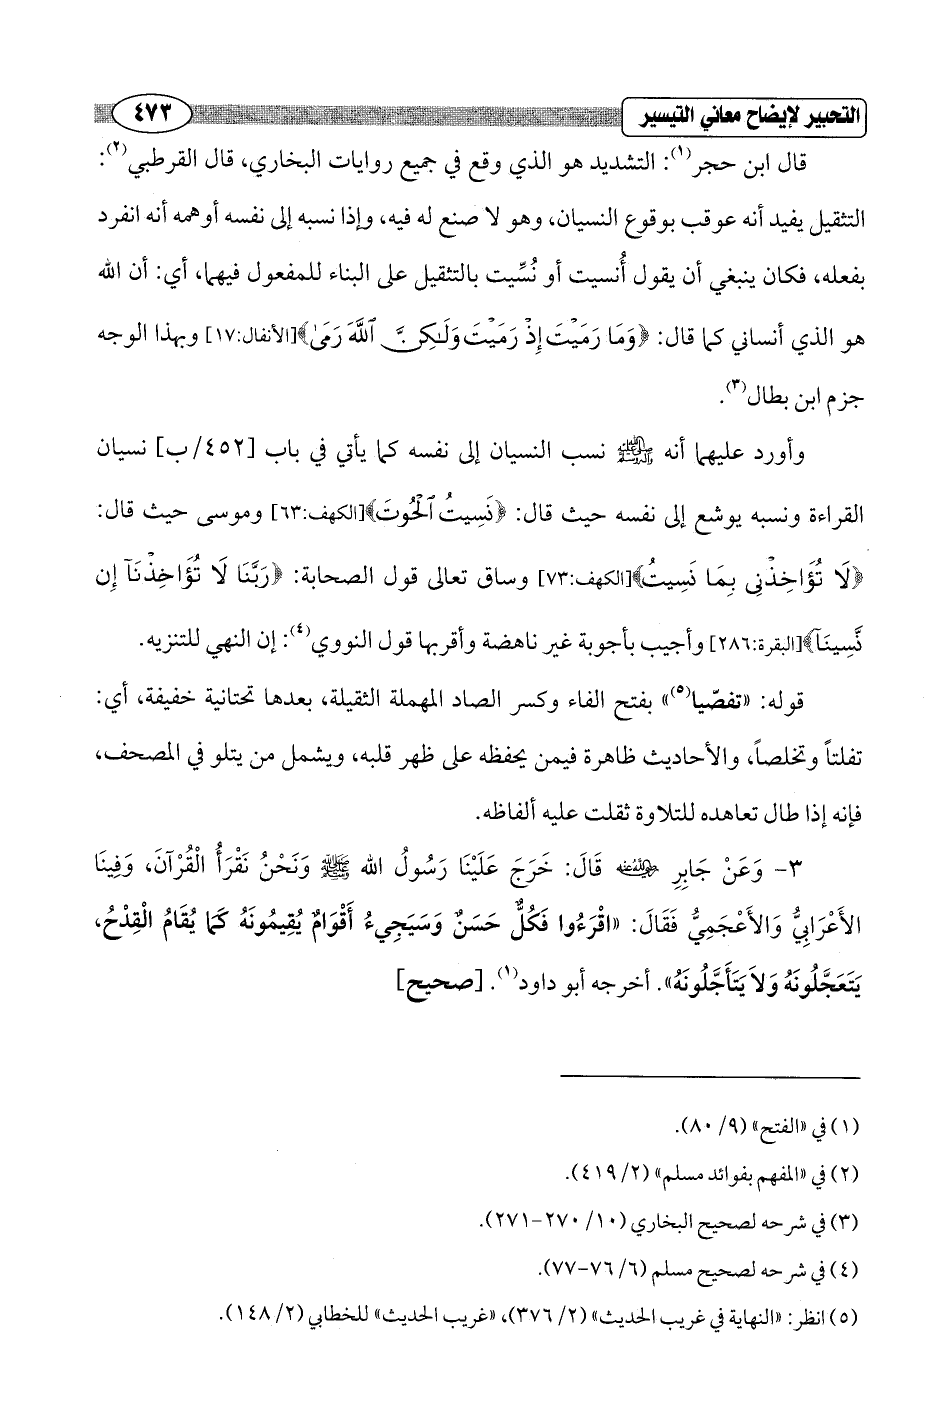 التحبير لإيضاح معاني التيسير
٤٧٣
قال ابن حجر(١): التشديد هو الذي وقع في جميع روايات البخاري، قال القرطبي(٢):
التثقيل يفيد أنه عوقب بوقوع النسيان، وهو لا صنع له فيه، وإذا نسبه إلى نفسه أوهمه أنه انفرد
بفعله، فكان ينبغي أن يقول أُنسيت أو نُسِّيت بالتثقيل على البناء للمفعول فيهما، أي: أن الله
هو الذي أنساني كما قال: ﴿وَمَا رَمَيْتَ إِذْ رَمَيْتَ وَلَٰكِنَّ ٱللَّهَ رَمَىٰ﴾[الأنفال:١٧] وبهذا الوجه
جزم ابن بطال(٣).
وأورد عليهما أنه ﷺ نسب النسيان إلى نفسه كما يأتي في باب [٤٥٢/ ب] نسيان
القراءة ونسبه يوشع إلى نفسه حيث قال: ﴿نَسِيتُ ٱلْحُوتَ﴾[الكهف:٦٣] وموسى حيث قال:
﴿لَا تُؤَاخِذْنِي بِمَا نَسِيتُ﴾[الكهف:٧٣] وساق تعالى قول الصحابة: ﴿رَبَّنَا لَا تُؤَاخِذْنَآ إِن
نَّسِينَآ﴾[البقرة:٢٨٦] وأجيب بأجوبة غير ناهضة وأقربها قول النووي(٤): إن النهي للتنزيه.
قوله: «تفصّيا(٥)» بفتح الفاء وكسر الصاد المهملة الثقيلة، بعدها تحتانية خفيفة، أي:
تفلتاً وتخلصاً، والأحاديث ظاهرة فيمن يحفظه على ظهر قلبه، ويشمل من يتلو في المصحف،
فإنه إذا طال تعاهده للتلاوة ثقلت عليه ألفاظه.
٣- وَعَنْ جَابِرٍ رضي الله عنه قَالَ: خَرَجَ عَلَيْنَا رَسُولُ الله ﷺ وَنَحْنُ نَقْرَأُ الْقُرْآنَ، وَفِينَا
الأَعْرَابِيُّ وَالأَعْجَمِيُّ فَقَالَ: «اقْرَءُوا فَكُلٌّ حَسَنٌ وَسَيَجِيءُ أَقْوَامٌ يُقِيمُونَهُ كَمَا يُقَامُ الْقِدْحُ،
يَتَعَجَّلُونَهُ وَلاَ يَتَأَجَّلُونَهُ». أخرجه أبو داود(١). [صحيح]
(١) في «الفتح» (٩/ ٨٠).
(٢) في «المفهم بفوائد مسلم» (٢/ ٤١٩).
(٣) في شرحه لصحيح البخاري (١٠/ ٢٧٠-٢٧١).
(٤) في شرحه لصحيح مسلم (٦/ ٧٦-٧٧).
(٥) انظر: «النهاية في غريب الحديث» (٢/ ٣٧٦)، «غريب الحديث» للخطابي (٢/ ١٤٨).